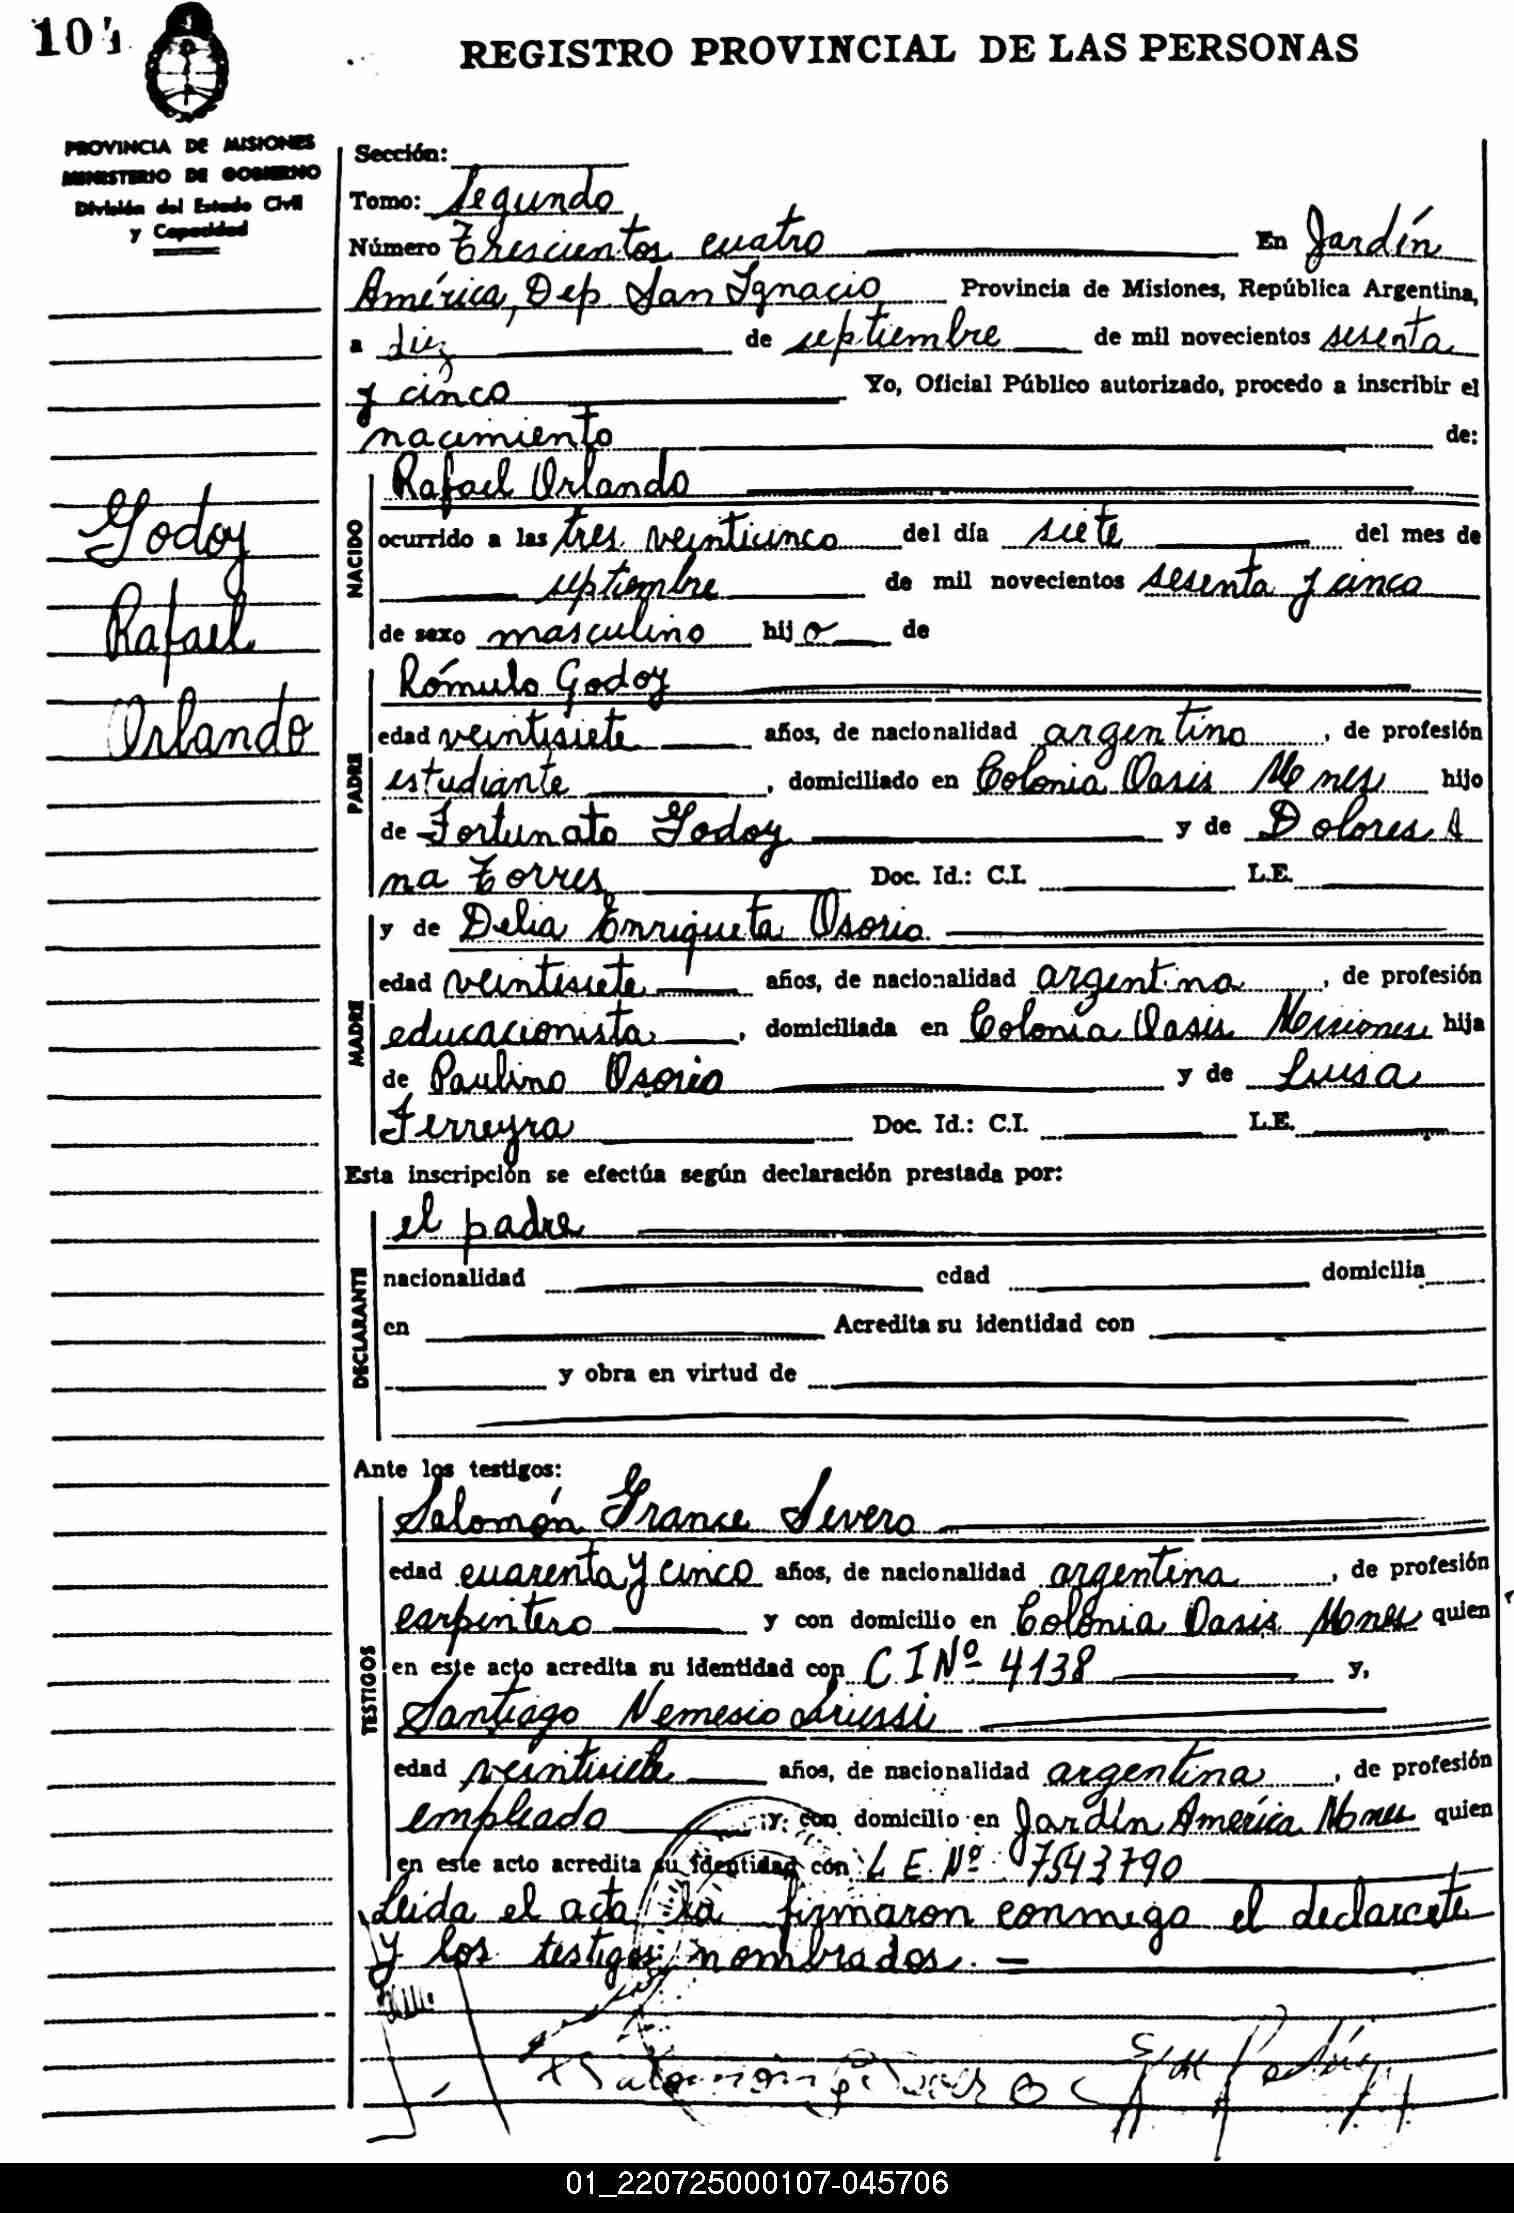 104
REGISTRO PROVINCIAL DE LAS PERSONAS
PROVINCIA DE MISIONES
MINISTERIO DE GOBIERNO
División del Estado Civil
y Capacidad
Godoy
Rafael
Orlando
Sección:
Tomo: Segundo
Número Trescientos cuatro En Jardín
América, Dep San Ignacio Provincia de Misiones, República Argentina,
a diez de septiembre de mil novecientos sesenta
y cinco Yo, Oficial Público autorizado, procedo a inscribir el
nacimiento de:
NACIDO
Rafael Orlando
ocurrido a las tres veinticinco del día siete del mes de
septiembre de mil novecientos sesenta y cinco
de sexo masculino hijo de
PADRE
Rómulo Godoy
edad veintisiete años, de nacionalidad argentino, de profesión
estudiante, domiciliado en Colonia Oasis Mones hijo
de Fortunato Godoy y de Dolores A
na Torres Doc. Id.: C.I. L.E.
MADRE
y de Delia Enriqueta Osorio
edad veintisiete años, de nacionalidad argentina, de profesión
educacionista, domiciliada en Colonia Oasis Misiones hija
de Paulino Osorio y de Luisa
Ferreyra Doc. Id.: C.I. L.E.
Esta inscripción se efectúa según declaración prestada por:
DECLARANTE
el padre
nacionalidad edad domicilia
en Acredita su identidad con
y obra en virtud de
Ante los testigos:
TESTIGOS
Salomón France Severo
edad cuarenta y cinco años, de nacionalidad argentina, de profesión
carpintero y con domicilio en Colonia Oasis Mones quien
en este acto acredita su identidad con C I Nº 4138 y,
Santiago Nemesio
edad veintisiete años, de nacionalidad argentina, de profesión
empleado y con domicilio en Jardín América Mones quien
en este acto acredita su identidad con L E Nº 7543790
Leida el acta la firmaron conmigo el declarante
y los testigos nombrados. —
01_220725000107-045706